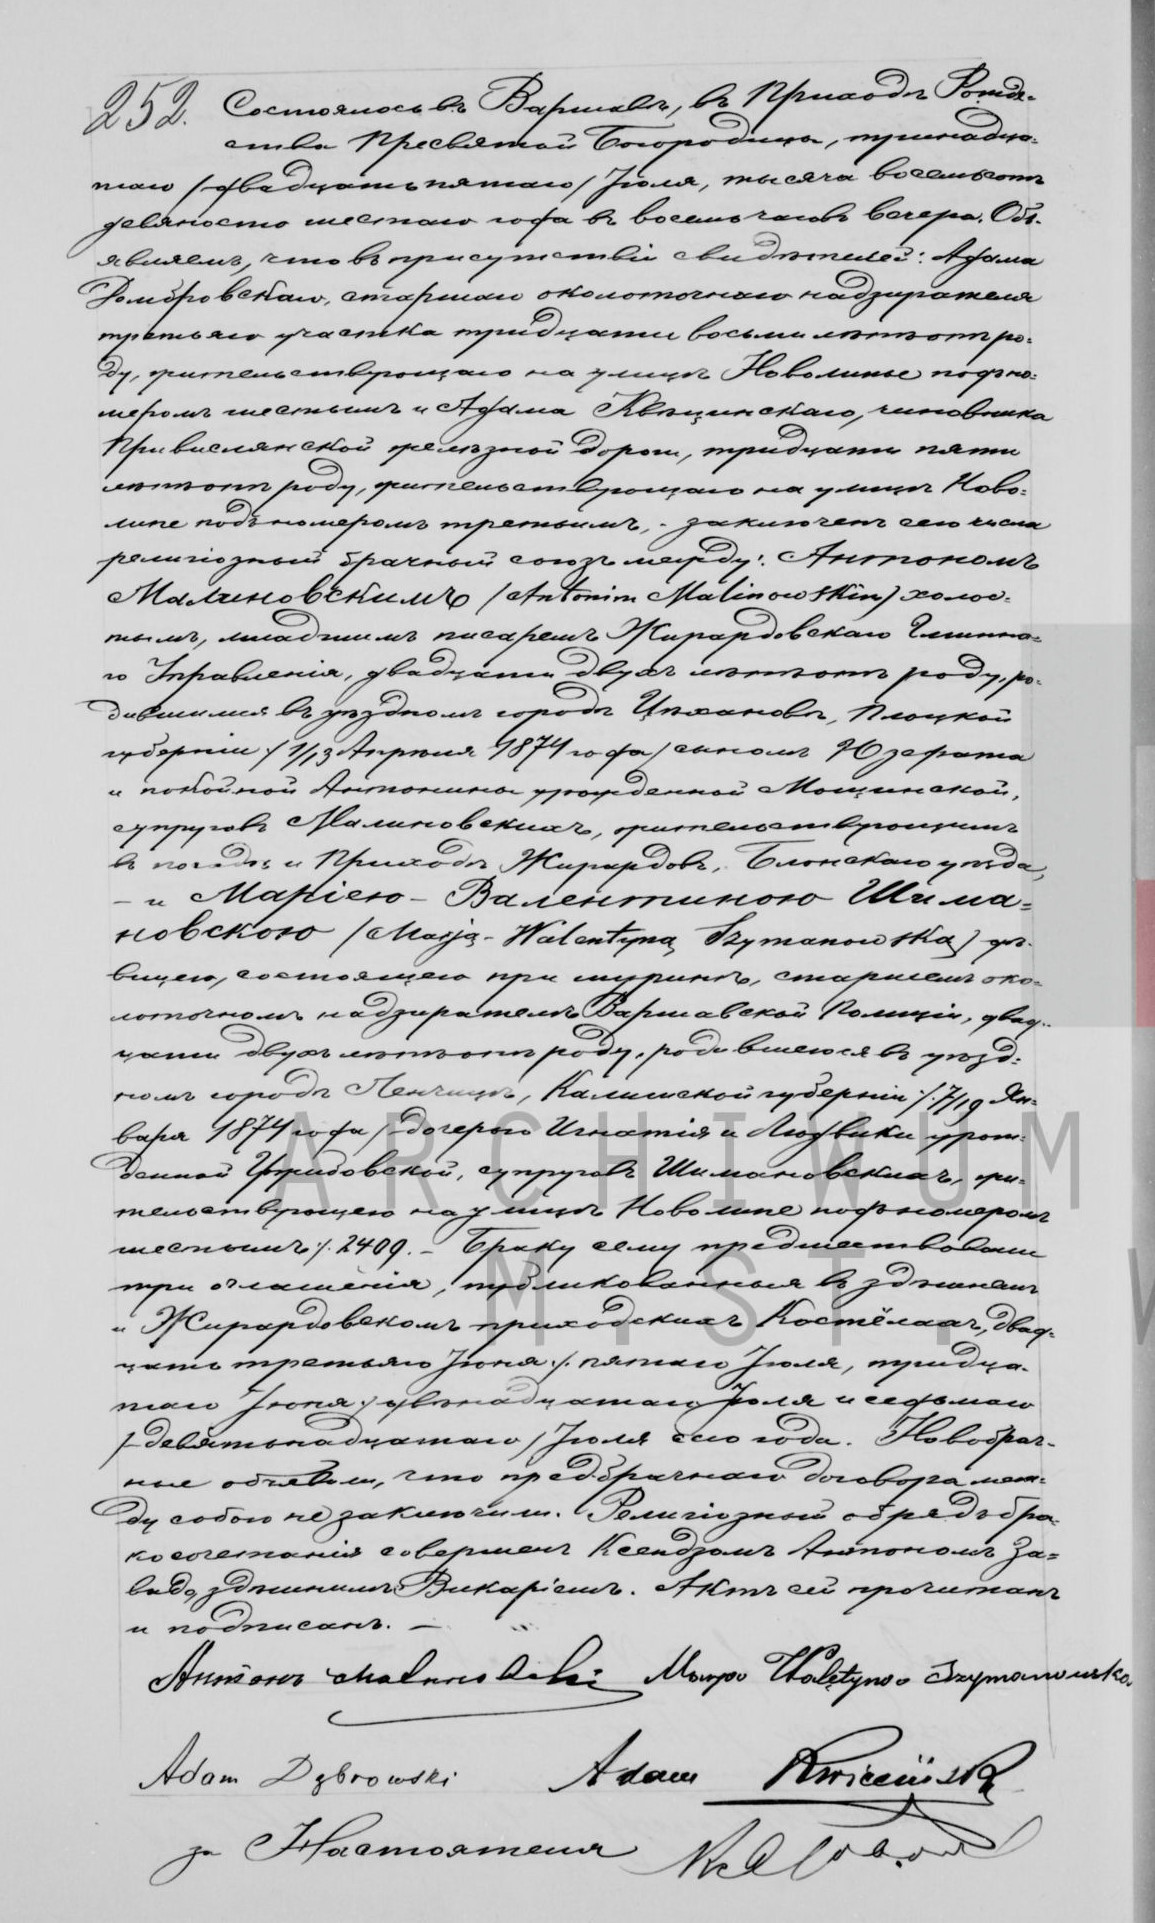 252. Состоялось въ Варшавѣ, въ Приходѣ Рожде-
ства Пресвятой Богородицы, тринадца-
таго /двадцать пятаго/ Іюля, тысяча восемьсотъ
девяносто шестаго года въ восемь часовъ вечера. Объ-
являемъ, что въ присутствіи свидѣтелей: Адама
Домбровскаго, старшаго околоточнаго надзирателя
третьяго участка тридцати восьми лѣтъ отъ ро-
ду, жительствующаго на улицѣ Новолипье подъ но-
меромъ шестымъ и Адама Квѣцинскаго, чиновника
Привислянской желѣзной дороги, тридцати пяти
лѣтъ отъ роду, жительствующаго на улицѣ Ново-
липе подъ номеромъ третьимъ, - заключенъ сего числа
религіозный брачный союзъ между: Антономъ
Малиновскимъ /Antonim Malinowskim/ холос-
тымъ, младшимъ писаремъ Жирардовскаго Гминна-
го Управленія, двадцати двухъ лѣтъ отъ роду, ро-
дившимся въ уѣздномъ городѣ Цѣхановѣ, Плоцкой
губерніи /1/13 Апрѣля 1874 года/ сыномъ Юзефата
и покойной Антонины урожденной Мощинской,
супруговъ Малиновскихъ, жительствующимъ
въ посадѣ и Приходѣ Жирардовъ, Блонскаго уѣзда,
- и Маріею - Валентиною Шима-
новскою /Marją - Walentyną Szymanowską/ дѣ-
вицею, состоящею при шуринѣ, старшемъ око-
лоточномъ надзирателѣ Варшавской Полиціи, двад-
цати двухъ лѣтъ отъ роду, родившеюся въ уѣзд-
номъ городѣ Ленчицѣ, Калишской губерніи /7/19 Ян-
варя 1874 года/ дочерью Игнатія и Людвики урож-
денной супруговъ Шимановскихъ, жи-
тельствующею на улицѣ Новолипе подъ номеромъ
шестымъ /. 2409. - Браку сему предшествовали
три оглашенія, публикованныя въ здѣшнемъ
и Жирардовскомъ приходскихъ Костёлахъ, двад-
цать третьяго Іюня /. пятаго Іюля, тридца-
таго Іюня / двѣнадцатаго Іюля и седьмаго
/девятьнадцатаго/ Іюля сего года. Новобрач-
ные объявили, что предбрачнаго договора меж-
ду собою не заключили. Религіозный обрядъ бра-
косочетанія совершенъ Ксендзомъ Антономъ За-
вадо, здѣшнимъ Викаріемъ. Актъ сей прочитанъ
и подписанъ. -
Антонъ Malinowski Marja Walętyna Szymanowska
Adam Dąbrowski Adam Kwieciński
за Настоятеля
ARCHIWUM
M. ST. W